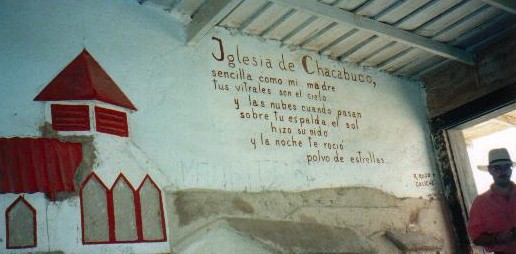 Iglesia de Chacabuco,
sencilla como mi madre
tus vitrales son el cielo
y las nubes cuando pasan
sobre tu espalda el sol
hizo su nido
y la noche te roció
polvo de estrellas